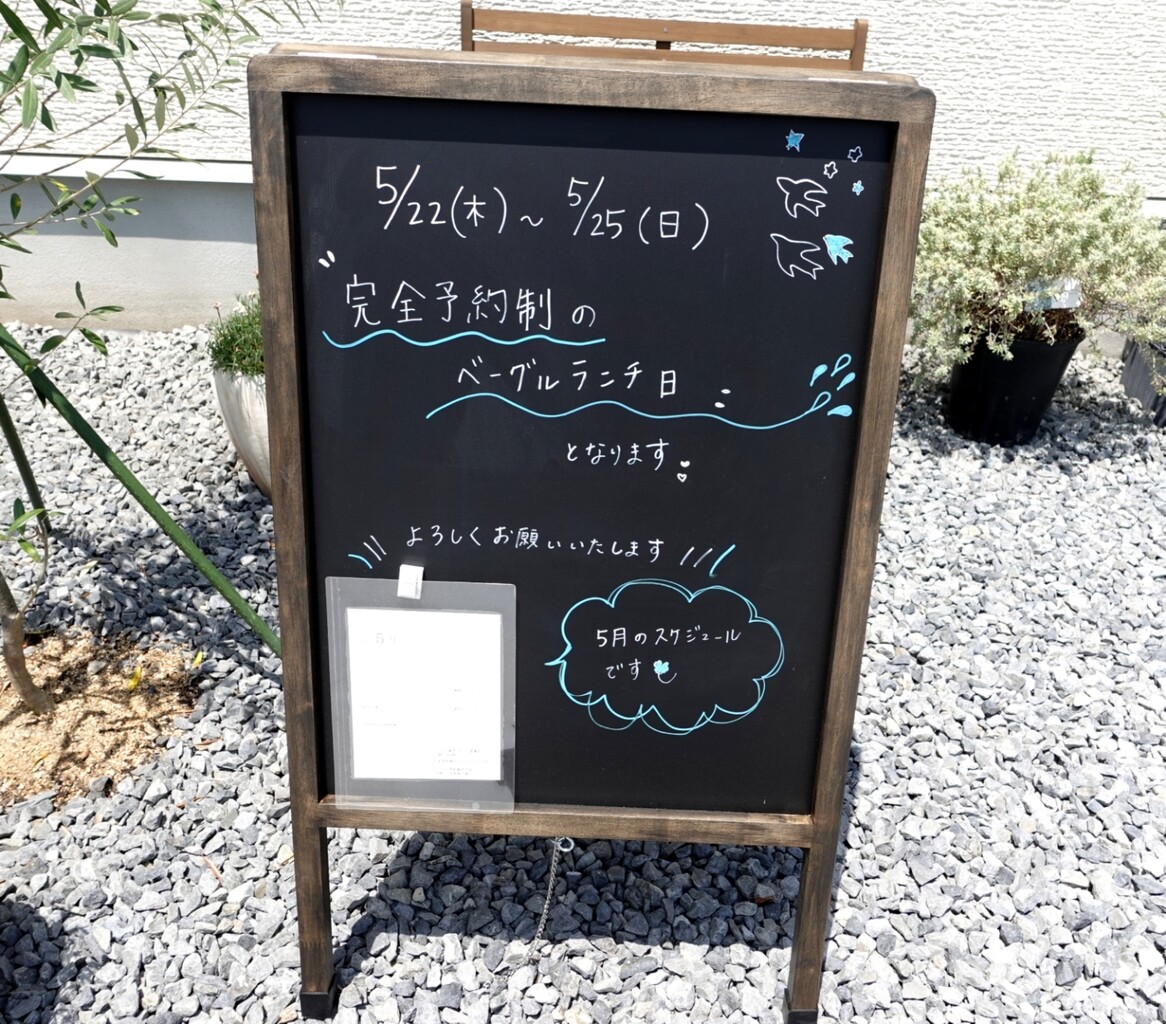 5/22(木)~ 5/25(日)
完全予約制の
ベーグルランチ日
となります
よろしくお願いいたします
5月のスケジュール
です